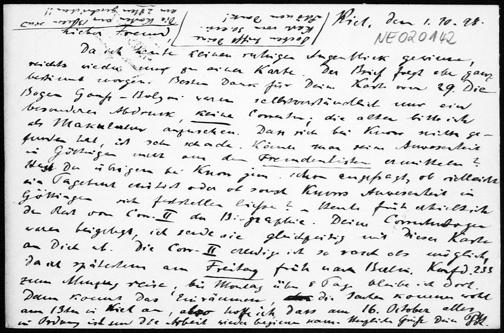 Kiel, den 1.10.28.
NE020142
Lieber Freund,
Da ich heute keinen ruhigen Augenblick gewinne,
nichts wieder nur zu einer Karte. Der Brief folgt aber ganz
bestimmt morgen. Besten Dank für Deine Karte vom 29. Die
Bogen Gauß-Bolyai waren selbstverständlich nur ein
besonderer Abdruck, keine Correctur, die alten bitte ich
als Makulatur anzusehen. Dass sich bei Knorr nichts ge-
funden hat, ist sehr schade. Könnte man seine Anwesenheit
in Göttingen nicht aus den Fremdenlisten ermitteln?
Hast Du übrigens bei Knorr jun. schon angefragt, ob vielleicht
ein Tagebuch existiert oder ob sonst Knorrs Anwesenheit in
Göttingen sich feststellen liesse? Heute früh erhielt ich
den Rest von Corr. II der Biographie. Deine Correcturbogen
waren beigelegt, ich sende sie gleichzeitig mit dieser Karte
an Dich ab. Die Corr. II erledige ich so rasch als möglich,
da ich spätestens am Freitag früh nach Berlin, Kurfd. 233
zum Umzug reise, bis Montag über 8 Tage bleibe ich dort.
Dann kommt das Einräumen, die Sachen kommen wohl
am 13ten in Kiel an, also hoffe ich, dass am 16. October alles
in Ordnung ist und die Arbeit wieder beginnen kann. Herzliche Grüße Dein